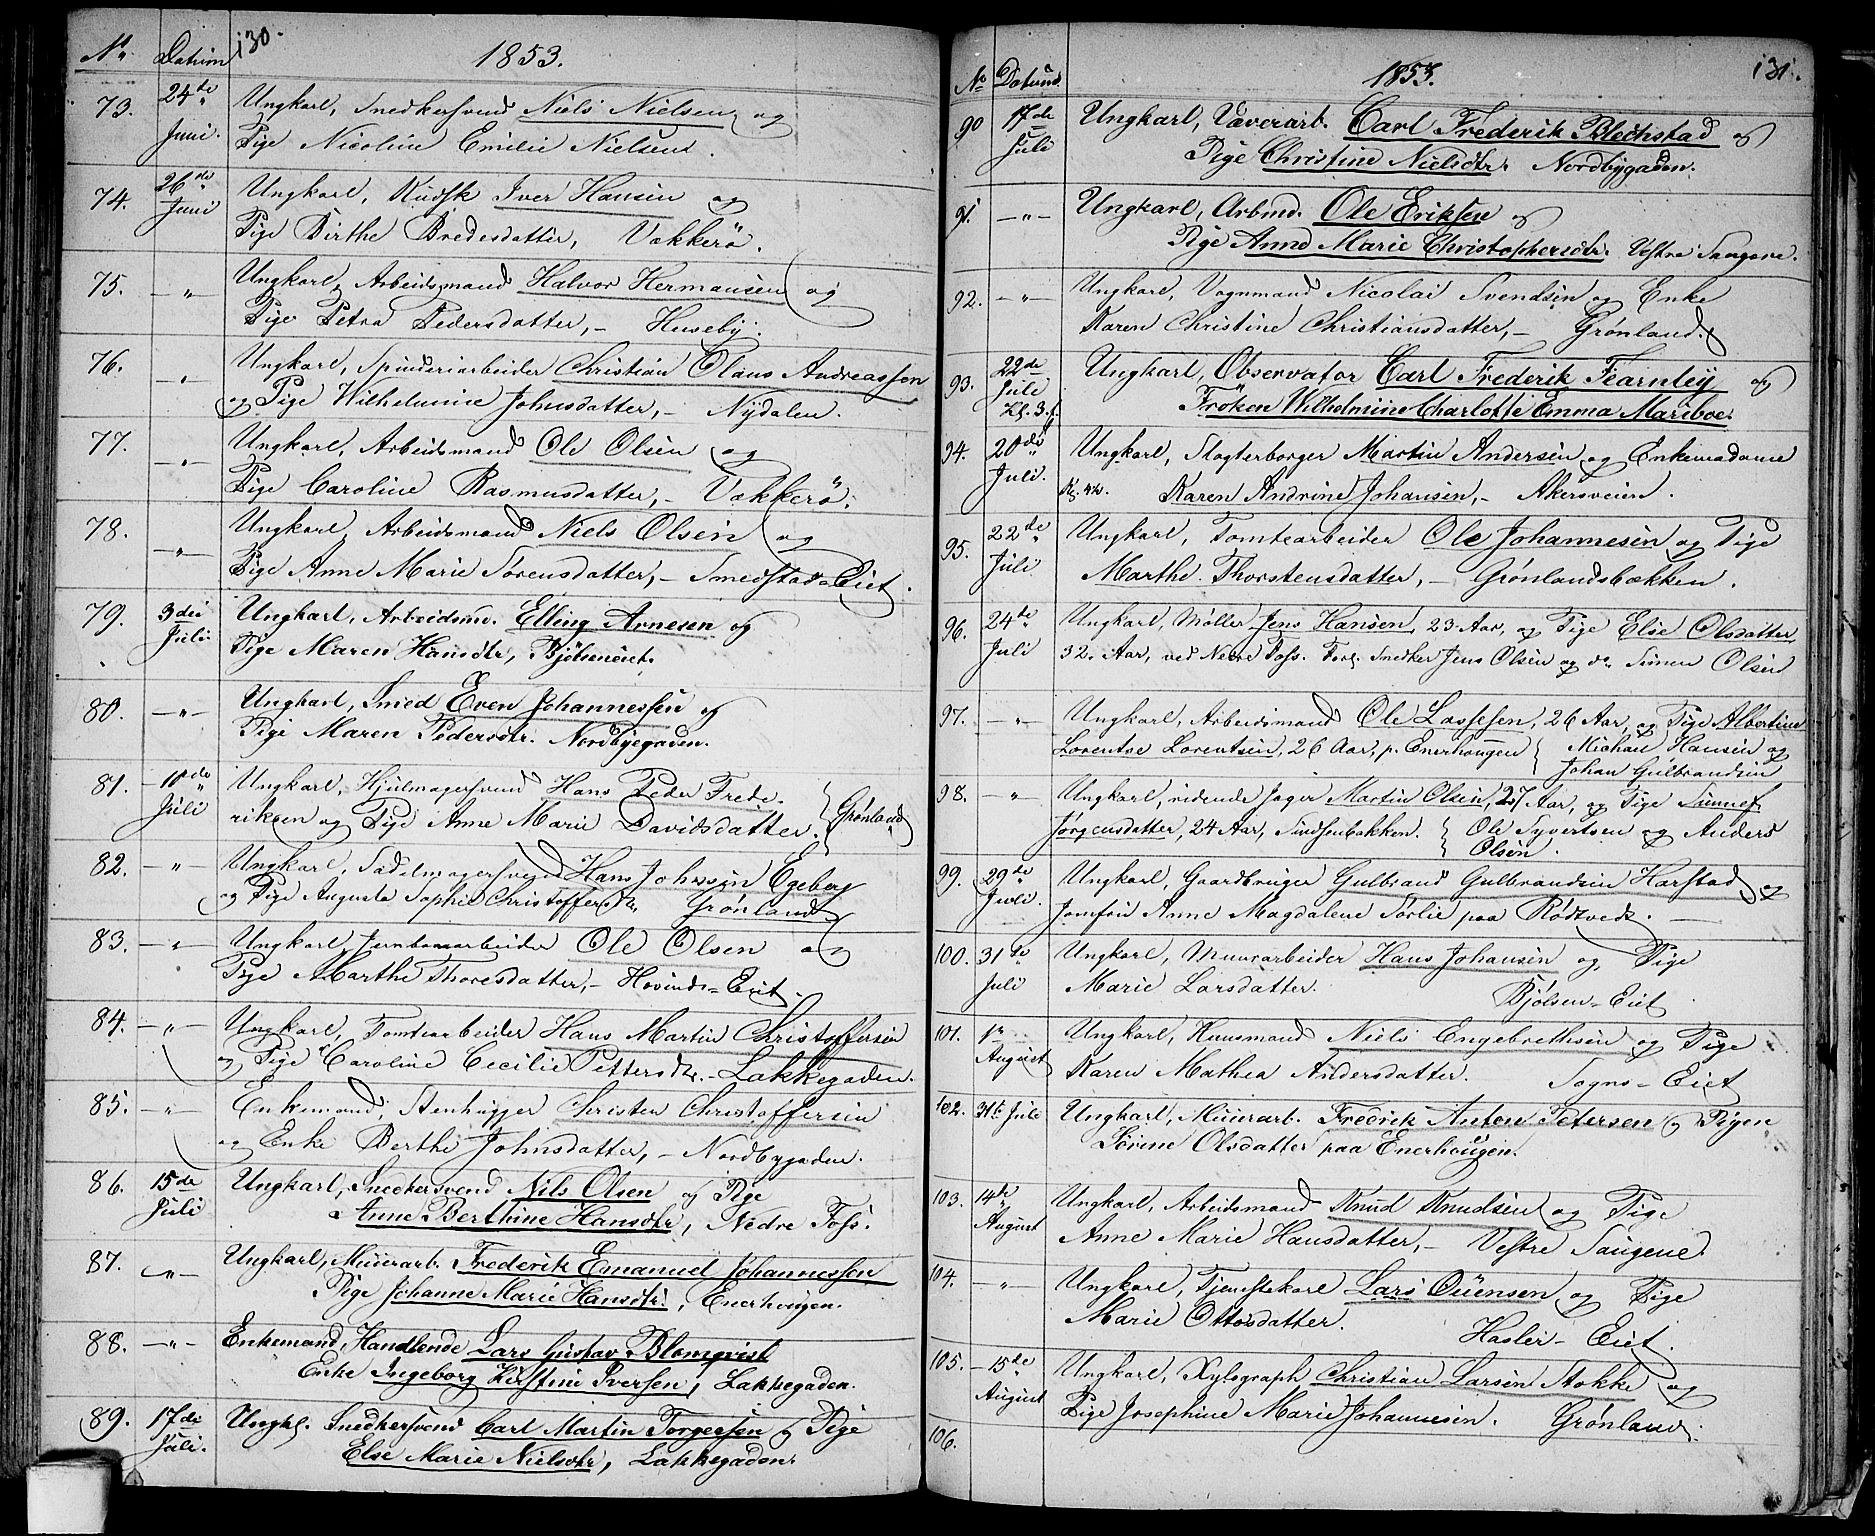 No. Datum 130. 1853.
73. 24de Juni. Ungkarl, Snedkersvend Niels Nielsen og
Pige Nicoline Emilie Nielsen.
74. 26de Juni Ungkarl, Kudsk Iver Hansen og
Pige Birthe Bredesdatter, Vækkerö.
75. —"— Ungkarl, Arbeidsmand Halvor Hermansen og
Pige Petra Pedersdatter, – Huseby.
76. —"— Ungkarl, Spinderiarbeider Christian Olaus Andreassen
og Pige Wilhelmine Johnsdatter, – Nydalen.
77. —"— Ungkarl, Arbeidsmand Ole Olsen og
Pige Caroline Rasmusdatter, – Vækkerö.
78. —"— Ungkarl, Arbeidsmand Niels Olsen og
Pige Anne Marie Sørensdatter, – Smedstad-Eiet.
79. 3die Juli. Ungkarl, Arbeidsmd. Elling Arnesen og
Pige Maren Hansdtr, Bjølseneiet.
80. —"— Ungkarl, Smed Even Johannessen og
Pige Maren Pedersdtr. Nordbyegaden.
81. 10de Juli Ungkarl, Hjulmagersvend Hans Peder Frede-
riksen og Pige Anne Marie Davidsdatter. } Grønland
82. —"— Ungkarl, Sadelmagersvend Hans Johnsen Egeberg
og Pige Augusta Sophie Christoffersdtr. Grønland
83. —"— Ungkarl Jernbanearbeider Ole Olsen og
Pige Marthe Thoresdatter, – Hovinds-Eiet.
84. —"— Ungkarl, Tomtearbeider Hans Martin Christoffersen
og Pige Caroline Cecilie Pettersdtr. – Lakkegaden.
85. —"— Enkemand, Stenhugger Christen Christoffersen
og Enke Berthe Johnsdatter, – Nordbygaden.
86. 15de Juli Ungkarl, Snedkersvend Nils Olsen og Pige
Anne Berthine Hansdtr, Nedre Foss.
87. —"— Ungkarl, Muurarb. Frederik Emanuel Johannessen
Pige Johanne Marie Hansdtr., Enerhougen.
88. —"— Enkemand, Handlende Lars Gustav Blomqvist
Enke Ingeborg Kirstine Iversen, Lakkegaden.
89. 17de Juli. Ungkl. Snedkersvend Carl Martin Torgersen og Pige
Else Marie Nielsdtr, Lakkegaden.
No. Datum 1853. 131.
90 17de Juli Ungkarl, Væverarb. Carl Frederik Blechstad og
Pige Christine Nielsdtr. Nordbygaden.
91. —"— Ungkarl, Arbmd. Ole Eriksen og
Pige Anne Marie Christophersdtr. Vestre Saugene.
92. —"— Ungkarl, Vognmand Nicolai Svendsen og Enke
Karen Christine Christiansdatter, – Grønland.
93. 22de Juli Kl. 3. Ungkarl, Observator Carl Frederik Fearnley og
Frøken Wilhelmine Charlotte Emma Mariboe.
94. 20de Juli. Ungkarl, Slagterborger Martin Andersen og Enkemadame
Karen Andrine Johansen, – Akersveien.
95. 22de Juli Ungkarl, Tomtearbeider Ole Johannesen og Pige
Marthe Thorstensdatter, – Grønlandsbækken.
96. 24de Juli Ungkarl, Møller Jens Hansen, 23 Aar, og Pige Else Olsdatter
32. Aar, ved Nedre Foss. Forl. Snedker Jens Olsen og do. Simen Olsen
97. —"— Ungkarl, Arbeidsmand Ole Lassesen, 26 Aar, og Pige Albertine
Lorentse Lorentsen, 26 Aar, p. Enerhougen { Michael Hansen og
Johan Gulbrandsen
98. —"— Ungkarl, ridende Jæger Martin Olsen, 27 Aar, og Pige Sünnef
Jørgensdatter, 24 Aar, Sindsenbakken. { Ole Syvertsen og Anders
Olsen.
99. 29de Juli. Ungkarl, Gaardbruger Gulbrand Gulbrandsen Harstad og
Jomfru Anne Magdalene Sørlie paa Rødtvedt. —
100. 31te Juli Ungkarl, Muurarbeider Hans Johansen og Pige
Marie Larsdatter. Bjølsen-Eiet
101. 1n August Ungkarl, Huusmand Niels Engebrethsen og Pige
Karen Mathea Andersdatter. Sogns-Eiet
102. 31te Juli Ungkarl, Muurarb. Fredrik Anton Petersen og Pigen
Sørine Olsdatter paa Enerhougen.
103. 14de August Ungkarl, Arbeidsmand Knud Knudsen og Pige
Anne Marie Hansdatter, – Vestre Saugene.
104. —"— Ungkarl, Tjenestekarl Lars Ouensen og Pige
Marie Ottosdatter. Hasler-Eiet.
105. 15de August Ungkarl, Xylograph Christian Larsen Stokke og
Pige Josephine Marie Johannesen. Grønland.
106.